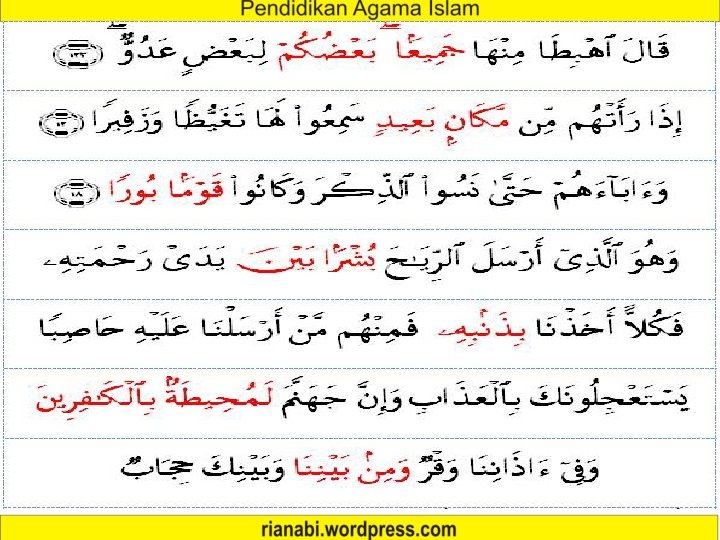 Pendidikan Agama Islam
قَالَ ٱهْبِطَا مِنْهَا جَمِيعًۢا ۖ بَعْضُكُمْ لِبَعْضٍ عَدُوٌّ ۖ ﴿١٢٣﴾
إِذَا رَأَتْهُم مِّن مَّكَانٍۭ بَعِيدٍ سَمِعُوا۟ لَهَا تَغَيُّظًا وَزَفِيرًا ﴿١٢﴾
وَءَابَآءَهُمْ حَتَّىٰ نَسُوا۟ ٱلذِّكْرَ وَكَانُوا۟ قَوْمًۢا بُورًا ﴿١٨﴾
وَهُوَ ٱلَّذِىٓ أَرْسَلَ ٱلرِّيَـٰحَ بُشْرًۢا بَيْنَ يَدَىْ رَحْمَتِهِۦ
فَكُلًّا أَخَذْنَا بِذَنۢبِهِۦ فَمِنْهُم مَّنْ أَرْسَلْنَا عَلَيْهِ حَاصِبًا
يَسْتَعْجِلُونَكَ بِٱلْعَذَابِ وَإِنَّ جَهَنَّمَ لَمُحِيطَةٌۢ بِٱلْكَـٰفِرِينَ
وَفِىٓ ءَاذَانِنَا وَقْرٌ وَمِنۢ بَيْنِنَا وَبَيْنِكَ حِجَابٌ
rianabi.wordpress.com